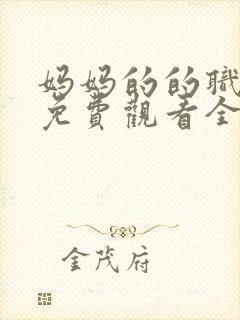 妈妈的的職
免費觀看全
金茂府